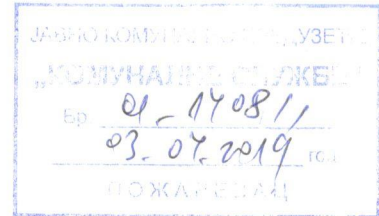 ЈАВНО КОМУНАЛНО ПРЕДУЗЕЋЕ
„КОМУНАЛНЕ СЛУЖБЕ"
Бр. 01-1408/1
03.07.2019 год.